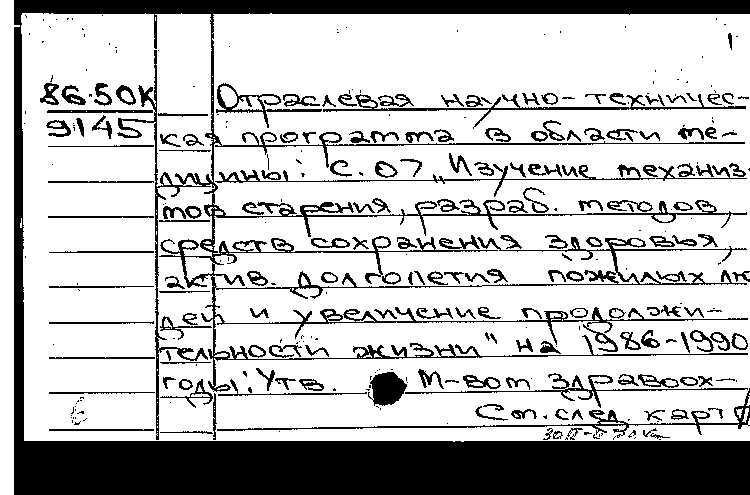 1
86-50К Отраслевая научно-техничес-
9145 кая программа в области ме-
дицины: С.07 „Изучение механиз-
мов старения, разраб. методов,
средств сохранения здоровья,
актив. долголетия пожилых лю
дей и увеличение продолжи-
тельности жизни" на 1986-1990
годы: Утв. М-вом здравоох-
См. след. карт
6